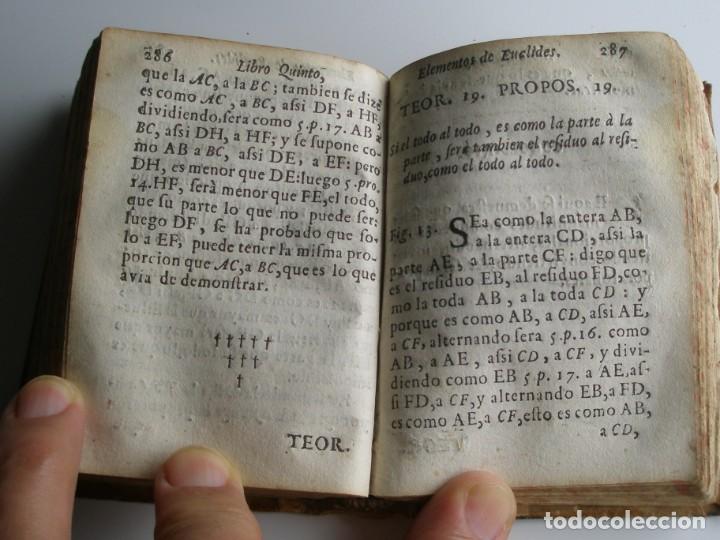 286
Libro Quinto,
que la AC, a la BC; tambien se dize
es como AC, a BC, assi DF, a HF,
dividiendo, sera como 5.p.17. AB a
BC, assi DH, a HF; y se supone co-
mo AB a BC, assi DE, a EF: pero
DH, es menor que DE: luego 5.pro.
14.HF, serà menor que FE, el todo,
que su parte lo que no puede ser:
luego DF, se ha probado que so-
lo a EF, puede tener la misma pro-
porcion que AC, a BC, que es lo que
avia de demonstrar.
†††††
†††
†
TEOR.
Elementos de Euclides. 287
TEOR. 19. PROPOS. 19.
Si el todo al todo, es como la parte à la
parte, serà tambien el residuo al resi-
duo, como el todo al todo.
Fig. 13. SEa como la entera AB,
a la entera CD, assi la
parte AE, a la parte CF: digo que
es el residuo EB, al residuo FD, co-
mo la toda AB, a la toda CD: y
porque es como AB, a CD, assi AE,
a CF, alternando sera 5.p.16. como
AB, a AE, assi CD, a CF, y divi-
diendo como EB 5 p. 17. a AE, as-
si FD, a CF, y alternando EB, a FD,
es como AE, a CF, esto es como AB,
a CD,
todocoleccion.net